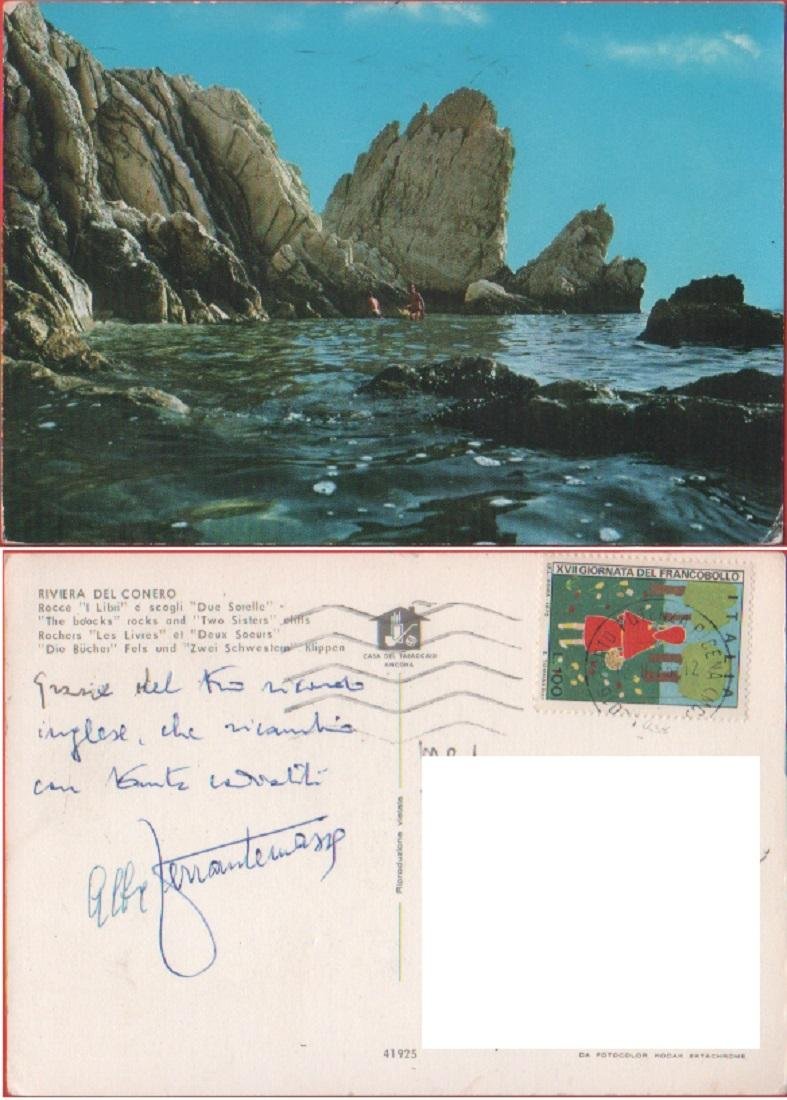 RIVIERA DEL CONERO
Rocce "I Libri" e scogli "Due Sorelle" -
"The boocks" rocks and "Two Sisters" cliffs
Rochers "Les Livres" et "Deux Soeurs"
"Die Bücher" Fels und "Zwei Schwestern" Klippen
CASA DEL TABACCAIO
ANCONA
XVII GIORNATA DEL FRANCOBOLLO
ITALIA
L. 100
Grazie del tuo ricordo
inglese, che ricambio
con tanta cordialità
Riproduzione vietata
41925
DA FOTOCOLOR KODAK EKTACHROME